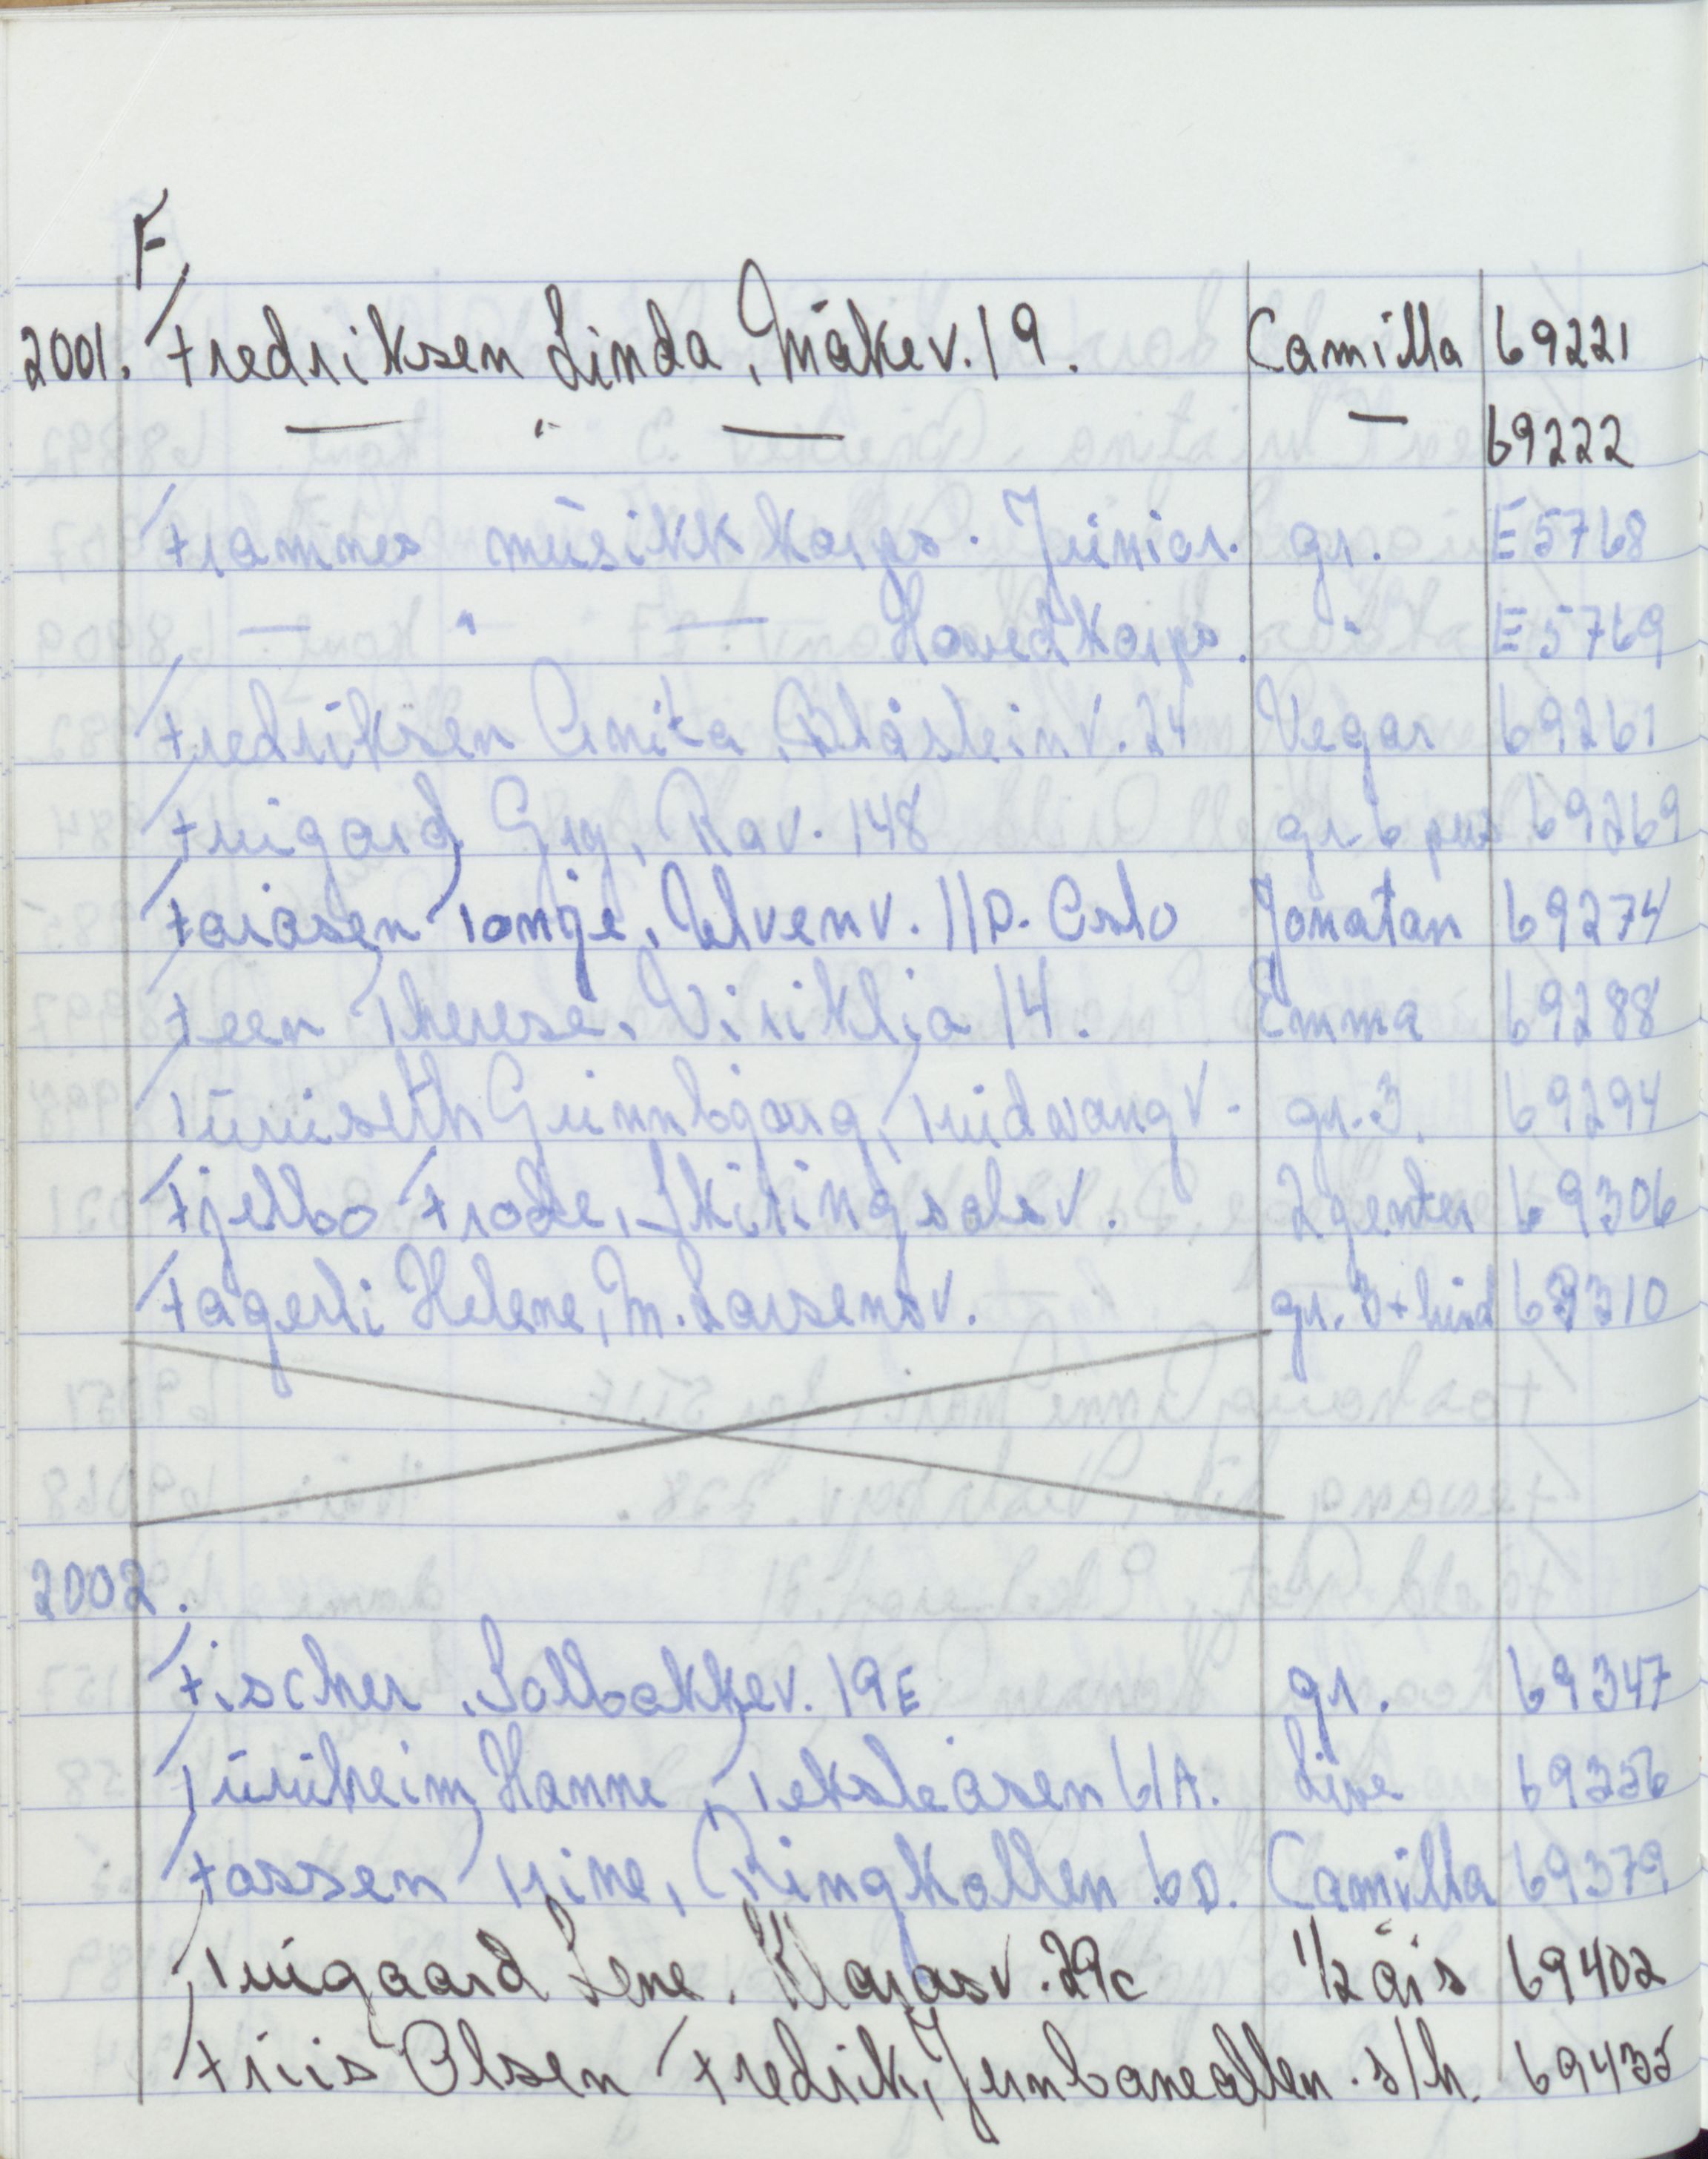 F
2001. Fredriksen Linda, Måkev. 19. Camilla 69221
— " — — 69222
Framnes musikkkorps. Junior. gr. E5768
— " — Hovedkorps. " E5769
Fredriksen Anita, Blåsteinv. 24 Vegar 69261
Furigård Gry, Rav. 148 gr. 6 pers 69269
Faråsen Tonje, Ulvenv. 11D. Oslo Jonatan 69274
Feen Therese. Viriklia 14. Emma 69288
Furuseth Gunnbjørg, Furidvangv. gr. 3. 69294
Fjelbo Frode, Skiringsalsv. 2 jenter 69306
Fagerli Helene, M. Larsensv. gr. 3 + hund 69310
2002.
Fischer. Solbakkev. 19E gr. 69347
Furuheim Hanne, Feksleåsen 61A. Live 69356
Fossen Trine, Ringkollen 6D. Camilla 69379
Furigaard Lene. Klaråsv. 29c 1/2 års 69402
Friis Olsen Fredrik, Jernbanealleen. s/h. 69435